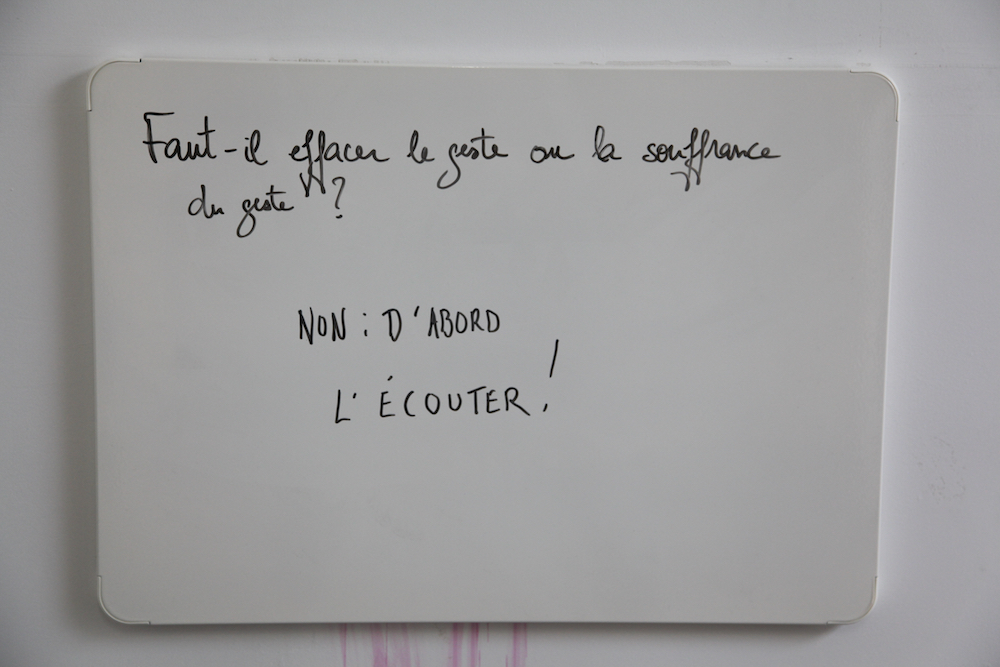 Faut-il effacer le geste ou la souffrance
du geste ?
NON : D'ABORD
L'ÉCOUTER !